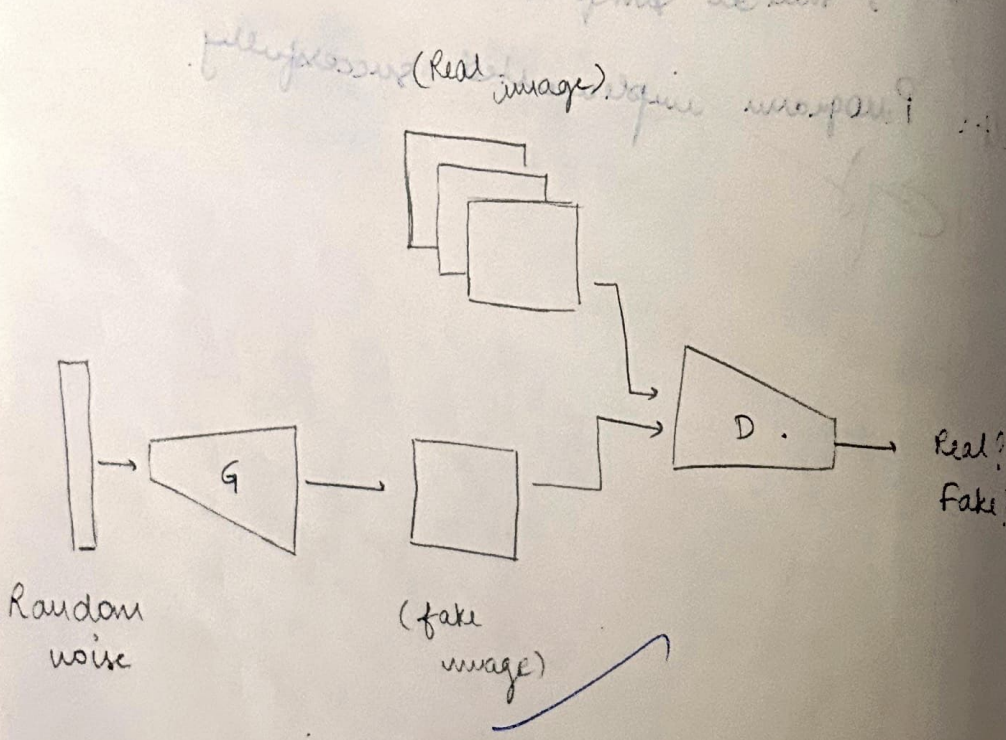 (Real
image)
G
D.
Real?
Fake
Random
noise
(fake
image)